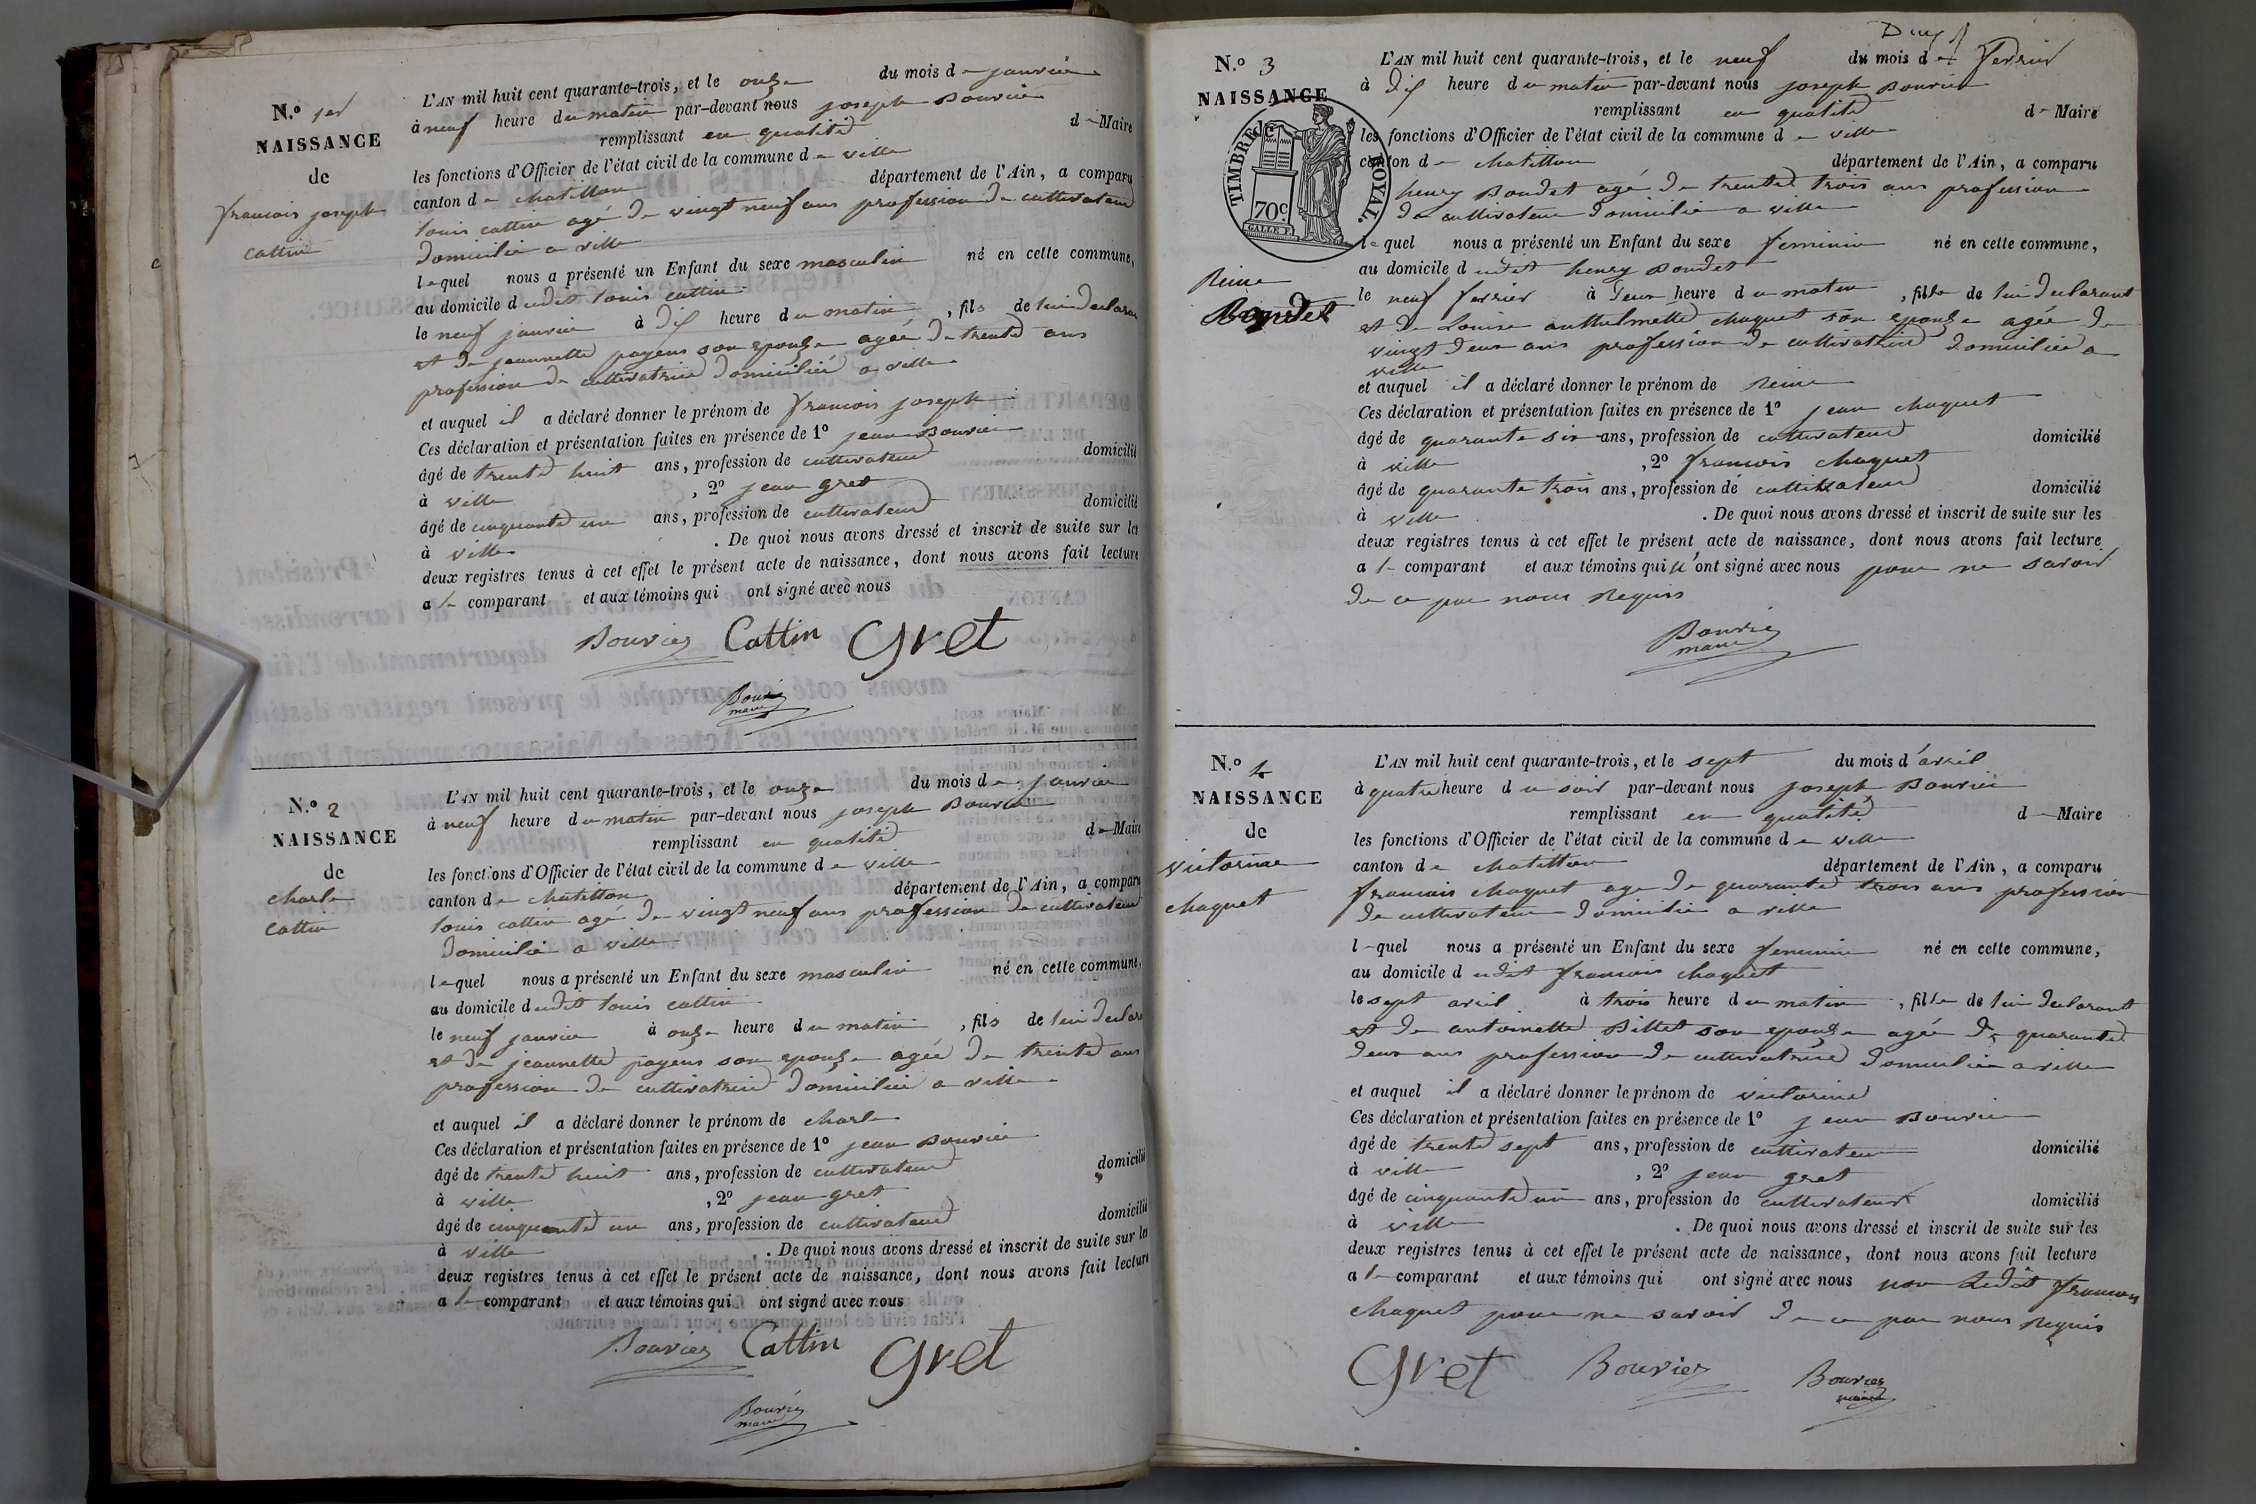 N.º 1er
NAISSANCE
de
francois joseph
cattin
L'AN mil huit cent quarante-trois, et le onze du mois de janvier
à neuf heure du matin par-devant nous joseph Bouvier
remplissant en qualité de Maire
les fonctions d'Officier de l'état civil de la commune de ville
canton de chatillon département de l'Ain, a comparu
louis cattin agé de vingt neuf ans profession de cultivateur
domicilié a ville
lequel nous a présenté un Enfant du sexe masculin né en cette commune,
au domicile dudit louis cattin
le neuf janvier à dix heure du matin, fils de lui declarant
et de jeannette payeus son epouse agée de trente ans
profession de cultivatrice domicilié a ville
et auquel il a déclaré donner le prénom de francois joseph
Ces déclaration et présentation faites en présence de 1º jean Bouvier
âgé de trente huit ans, profession de cultivateur domicilié
à ville, 2º jean gret
âgé de cinquante un ans, profession de cultivateur domicilié
à ville. De quoi nous avons dressé et inscrit de suite sur les
deux registres tenus à cet effet le présent acte de naissance, dont nous avons fait lecture
a le comparant et aux témoins qui ont signé avec nous
Bouvier Cattin Gret
Bouvier
maire
N.º 2
NAISSANCE
de
charle
cattin
L'AN mil huit cent quarante-trois, et le onze du mois de janvier
à neuf heure du matin par-devant nous joseph Bouvier
remplissant en qualité de Maire
les fonctions d'Officier de l'état civil de la commune de ville
canton de chatillon département de l'Ain, a comparu
louis cattin agé de vingt neuf ans profession de cultivateur
domicilié a ville
lequel nous a présenté un Enfant du sexe masculin né en cette commune,
au domicile dudit louis cattin
le neuf janvier à onze heure du matin, fils de lui declarant
et de jeannette payeus son epouse agée de trente ans
profession de cultivatrice domicilié a ville
et auquel il a déclaré donner le prénom de charle
Ces déclaration et présentation faites en présence de 1º jean Bouvier
âgé de trente huit ans, profession de cultivateur domicilié
à ville, 2º jean gret
âgé de cinquante un ans, profession de cultivateur domicilié
à ville. De quoi nous avons dressé et inscrit de suite sur les
deux registres tenus à cet effet le présent acte de naissance, dont nous avons fait lecture
a le comparant et aux témoins qui ont signé avec nous
Bouvier Cattin Gret
Bouvier
maire
N.º 3
NAISSANCE
de
TIMBRE ROYAL.
70c.
Reine
Boudet
L'AN mil huit cent quarante-trois, et le neuf du mois de fevrier
à dix heure du matin par-devant nous joseph Bouvier
remplissant en qualité de Maire
les fonctions d'Officier de l'état civil de la commune de ville
canton de chatillon département de l'Ain, a comparu
henry Boudet agé de trente trois ans profession
de cultivateur domicilié a ville
lequel nous a présenté un Enfant du sexe feminin né en cette commune,
au domicile dudit henry Boudet
le neuf fevrier à deux heure du matin, fille de lui declarant
et de Louise anthelmette chaquet son epouse agée de
vingt deux ans profession de cultivatrice domiciliée a
ville
et auquel il a déclaré donner le prénom de Reine
Ces déclaration et présentation faites en présence de 1º jean chaquet
âgé de quarante six ans, profession de cultivateur domicilié
à ville, 2º francois chaquet
âgé de quarante trois ans, profession de cultivateur domicilié
à ville. De quoi nous avons dressé et inscrit de suite sur les
deux registres tenus à cet effet le présent acte de naissance, dont nous avons fait lecture
a le comparant et aux témoins qui n'ont signé avec nous pour ne savoir
de ce par nous Requis
Bouvier
maire
N.º 4
NAISSANCE
de
victorine
chaquet
L'AN mil huit cent quarante-trois, et le sept du mois d'avril
à quatre heure du soir par-devant nous joseph Bouvier
remplissant en qualité de Maire
les fonctions d'Officier de l'état civil de la commune de ville
canton de chatillon département de l'Ain, a comparu
francois chaquet age de quarante trois ans profession
de cultivateur domicilié a ville
lequel nous a présenté un Enfant du sexe feminin né en cette commune,
au domicile dudit francois chaquet
le sept avril à trois heure du matin, fille de lui declarant
et de antoinette Billet son epouse agée de quarante
deux ans profession de cultivatrice domiciliée a ville
et auquel il a déclaré donner le prénom de victorine
Ces déclaration et présentation faites en présence de 1º jean Bouvier
âgé de trente sept ans, profession de cultivateur domicilié
à ville, 2º jean gret
âgé de cinquante un ans, profession de cultivateur domicilié
à ville. De quoi nous avons dressé et inscrit de suite sur les
deux registres tenus à cet effet le présent acte de naissance, dont nous avons fait lecture
a le comparant et aux témoins qui ont signé avec nous non ledit francois
chaquet pour ne savoir de ce par nous Requis
Gret Bouvier Bouvier
maire